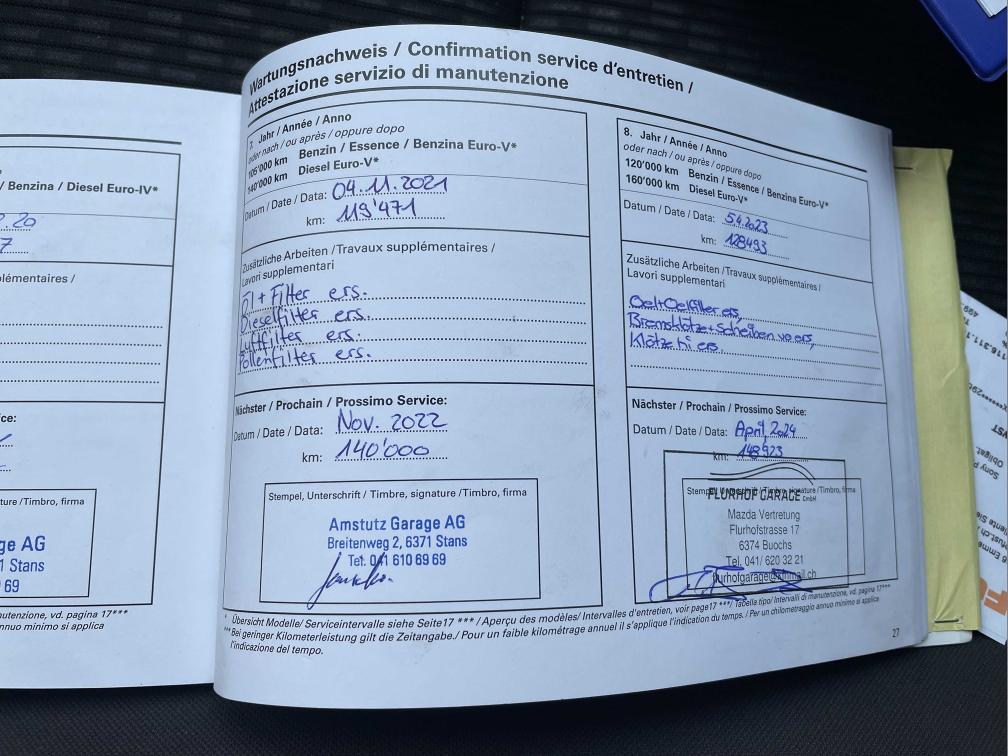 Benzina / Diesel Euro-IV*
plémentaires /
ce:
ature /Timbro, firma
ge AG
1 Stans
69
nutenzione, vd. pagina 17***
annuo minimo si applica
Wartungsnachweis / Confirmation service d'entretien /
Attestazione servizio di manutenzione
7. Jahr / Année / Anno
oder nach / ou après / oppure dopo
105'000 km Benzin / Essence / Benzina Euro-V*
140'000 km Diesel Euro-V*
Datum / Date / Data: 04.11.2021
km: 119'471
Zusätzliche Arbeiten /Travaux supplémentaires /
Lavori supplementari
Öl + Filter ers.
Dieselfilter ers.
Luftfilter ers.
Pollenfilter ers.
Nächster / Prochain / Prossimo Service:
Datum / Date / Data: Nov. 2022
km: 140'000
Stempel, Unterschrift / Timbre, signature /Timbro, firma
Amstutz Garage AG
Breitenweg 2, 6371 Stans
Tel. 041 610 69 69
8. Jahr / Année / Anno
oder nach / ou après / oppure dopo
120'000 km Benzin / Essence / Benzina Euro-V*
160'000 km Diesel Euro-V*
Datum / Date / Data: 5.4.2023
km: 128493
Zusätzliche Arbeiten /Travaux supplémentaires /
Lavori supplementari
Oel+Oelfilter ers,
Bremsklötze+Scheiben vo ers,
Klötze hi ers
Nächster / Prochain / Prossimo Service:
Datum / Date / Data: April, 2024
km: 148923
Stempel, Unterschrift / Timbre, signature /Timbro, firma
FLURHOF GARAGE GmbH
Mazda Vertretung
Flurhofstrasse 17
6374 Buochs
Tel. 041/ 620 32 21
flurhofgarage@bmmail.ch
* Übersicht Modelle/ Serviceintervalle siehe Seite17 *** / Aperçu des modèles/ Intervalles d'entretien, voir page17 ***/ Tabella tipo/ Intervalli di manutenzione, vd. pagina 17***
*** Bei geringer Kilometerleistung gilt die Zeitangabe./ Pour un faible kilométrage annuel il s'applique l'indication du temps. / Per un chilometraggio annuo minimo si applica
l'indicazione del tempo.
27